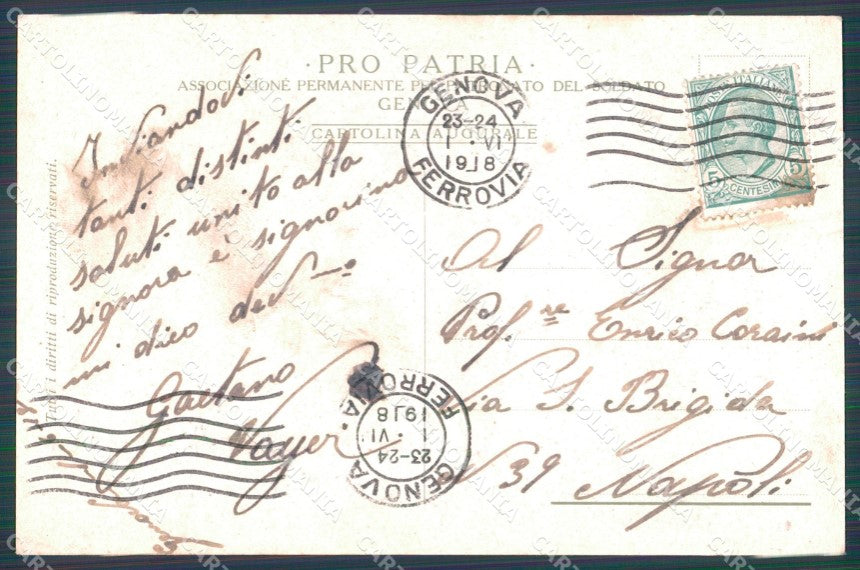 · PRO PATRIA ·
ASSOCIAZIONE PERMANENTE PEL PATRONATO DEL SOLDATO
GENOVA
CARTOLINA AUGURALE
GENOVA
23-24
1 · VI
1918
FERROVIA
POSTE ITALIANE
5 CENTESIMI 5
Inviandovi
tanti distinti
saluti unito alla
signora è signorina
mi dico dev——o
Gaetano
Mayer
Al Signor
Prof.re Enrico Corsini
Via S. Brigida
N 39 Napoli
GENOVA
23-24
1 · VI
1918
FERROVIA
Tutti i diritti di riproduzione riservati.
CARTOLINOMANIA